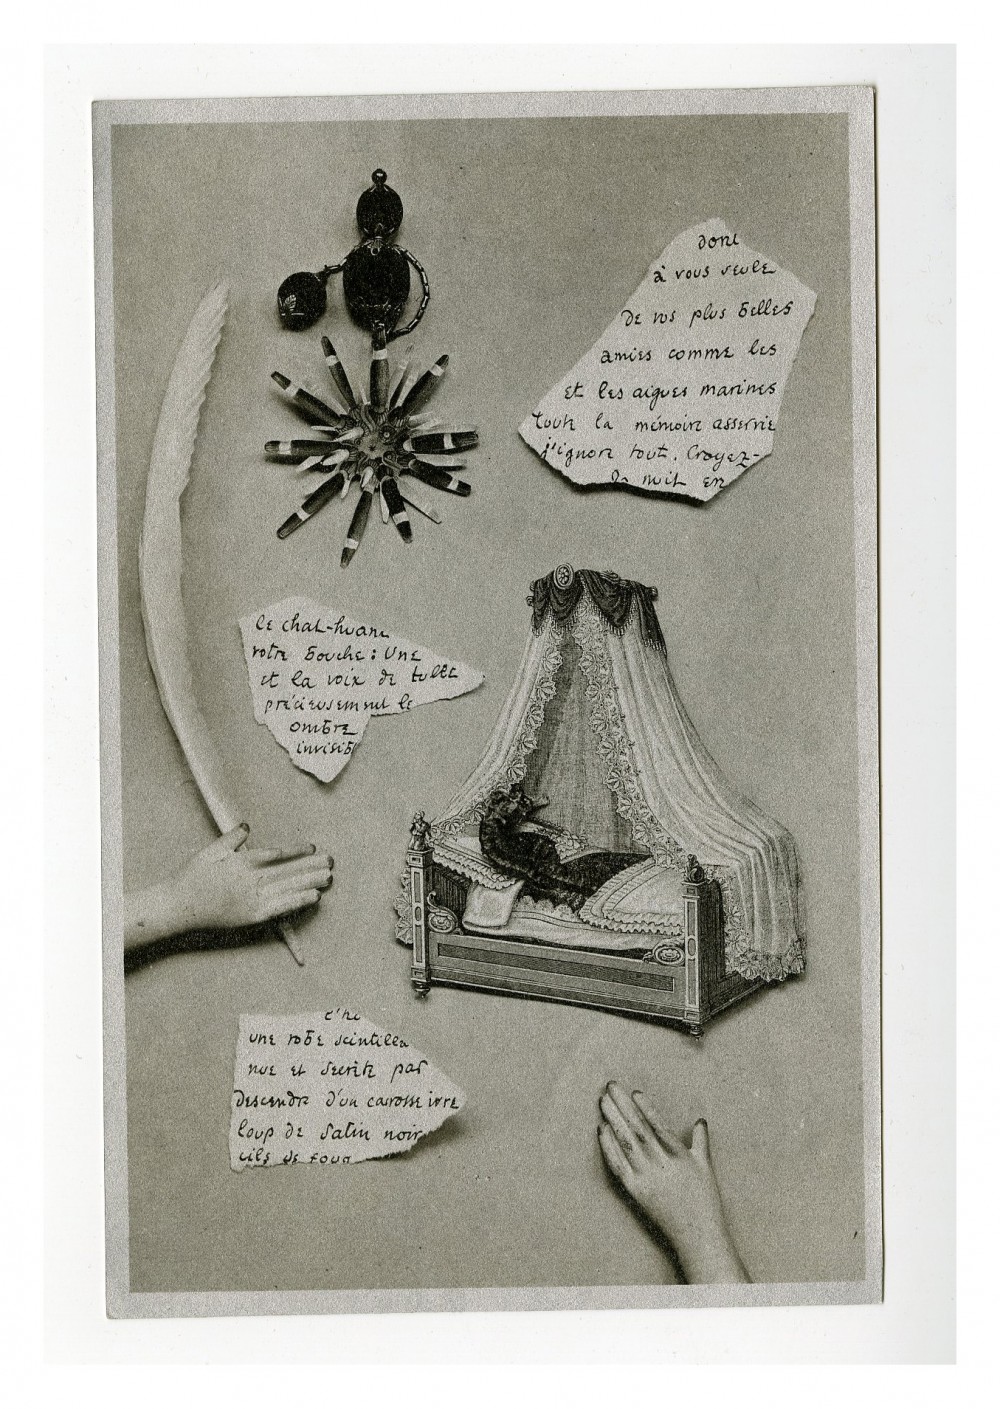 dont
à vous seule
de vos plus belles
amies comme les
et les aigues marines
toute la mémoire asservie
j'ignore tout. Croyez-
la nuit en
le chat-huant
votre bouche: Une
et la voix de tulle
précieusement le
ombre
invisib
une robe scintilla
nue et secrète par
descendre d'un carrosse ivre
loup de satin noir
cils de